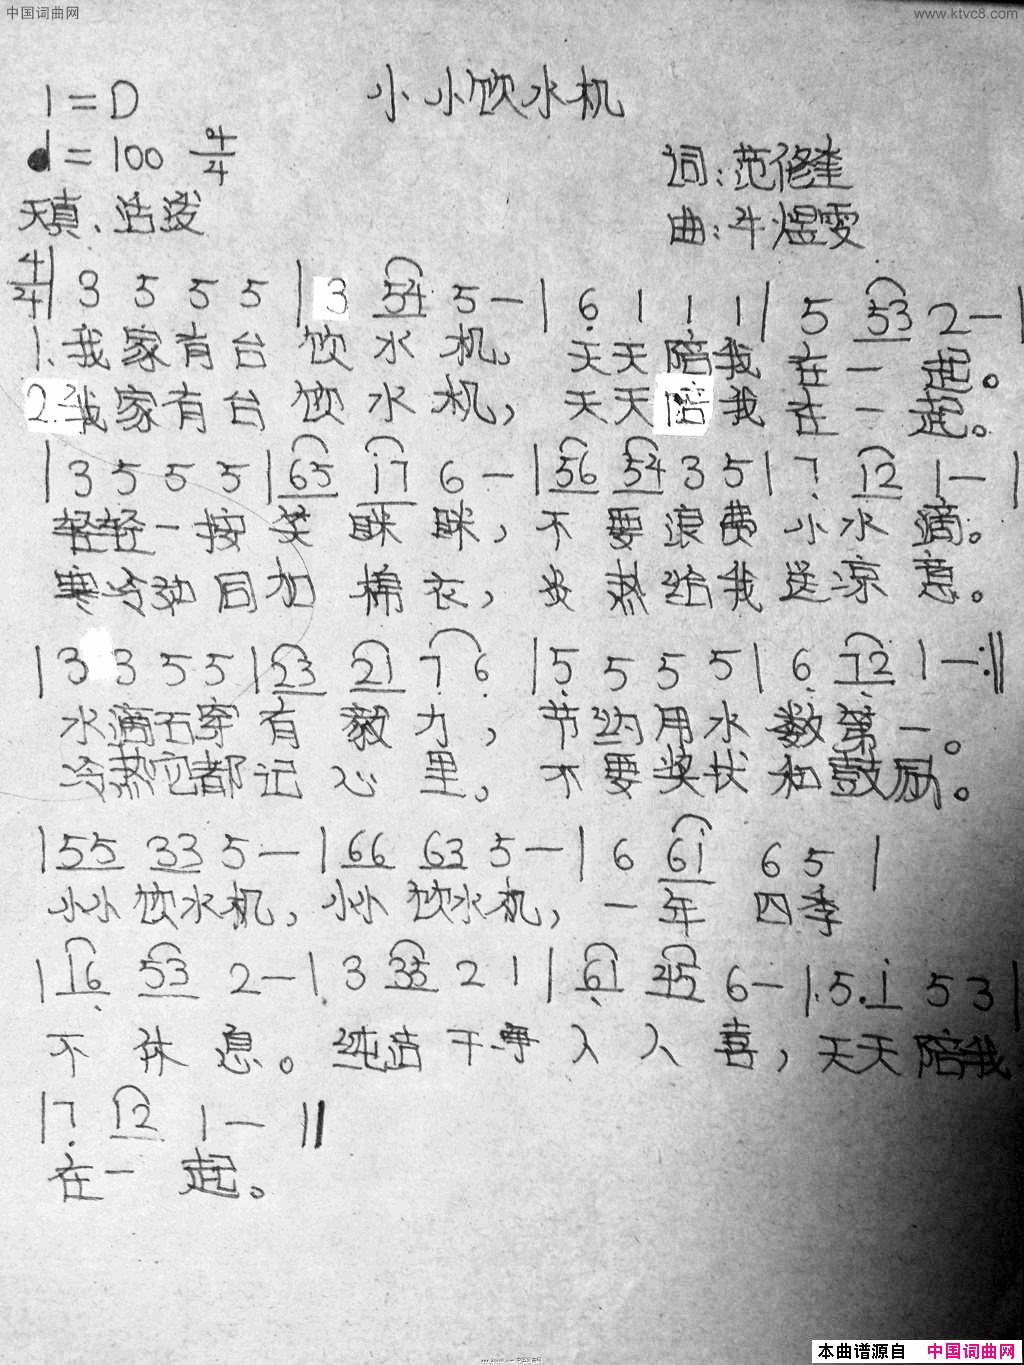 中国词曲网
www.ktvc8.com
小小饮水机
1=D
♩=100 4/4
词:范修奎
天真、活泼
曲:牛煜雯
4/4| 3 5 5 5 | 3 54 5 — | 6 1 1 1 | 5 53 2 — |
1.我家有台饮水机。天天陪我在一起。
2.我家有台饮水机,天天陪我在一起。
| 3 5 5 5 | 65 17 6 — | 56 54 3 5 | 7 12 1 — |
轻轻一按笑眯眯,不要浪费小水滴。
寒冷如同加棉衣,炎热给我送凉意。
| 3 3 5 5 | 23 21 7 6 | 5 5 5 5 | 6 72 1 — :||
水滴石穿有毅力,节约用水数第一。
冷热它都记心里。不要奖状和鼓励。
| 55 33 5 — | 66 63 5 — | 6 61 6 5 |
小小饮水机,小小饮水机,一年四季
| 16 53 2 — | 3 35 2 1 | 61 45 6 — | 5. 1 5 3 |
不休息。纯洁干净人人喜,天天陪我
| 7 12 1 — ||
在一起。
本曲谱源自 中国词曲网